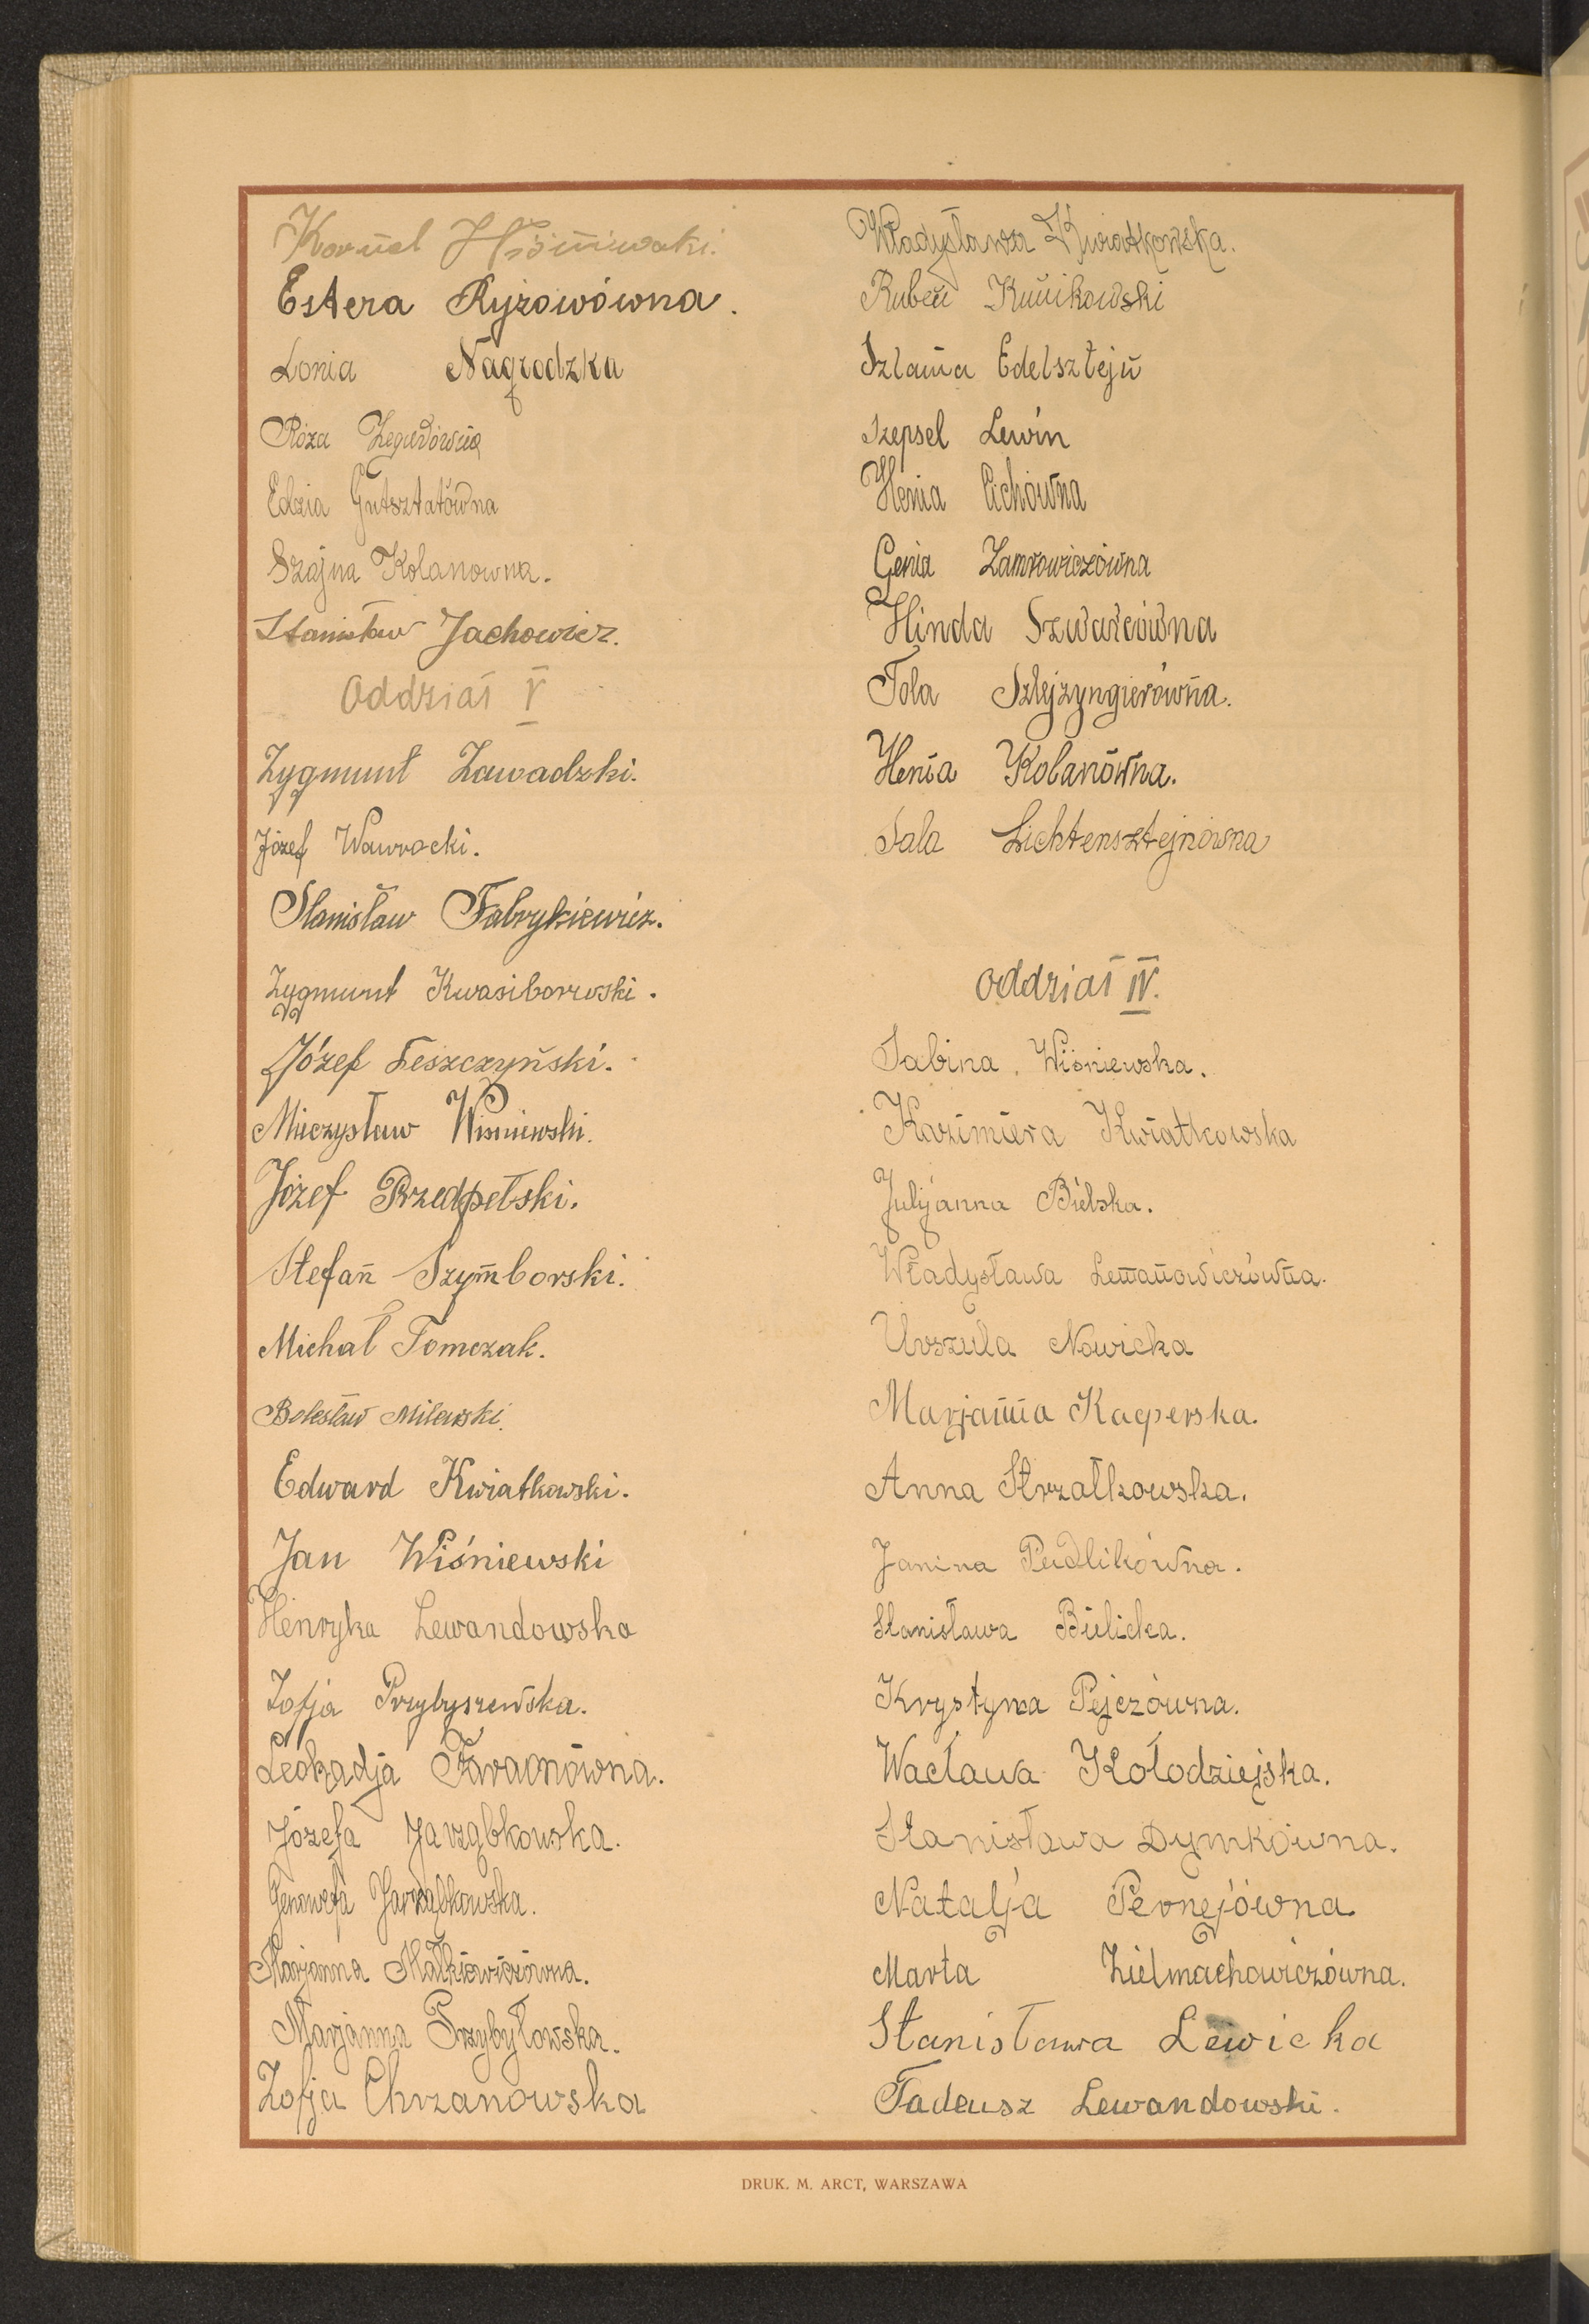 Kornel Wiśniewski.
Estera Ryżowówna.
Lonia Nagrodzka
Róza
Edzia Gutsztatówna
Szajna Kolanowna.
Stanisław Jachowicz.
Oddział V
Zygmunt Zawadzki.
Józef Wawrocki.
Stanisław Fabrykiewicz.
Zygmunt Kwasiborwski.
Józef Leszczyński.
Mieczysław Wiśniewski.
Józef Przedpełski.
Stefan Szymborski.
Michał Tomczak.
Bolesław Milewski
Edward Kwiatkowski.
Jan Wiśniewski
Henryka Lewandowska
Zofja Przybyszewska.
Leokadja Faraonówna.
Józefa Jarząbkowska.
Genowefa Jarząbkowska.
Marjanna Małkiewiczówna.
Marjanna Przybyłowska.
Zofja Chrzanowska
Władysława Kwiatkowska.
Ruben Kunikowski
Szlama Edelsztejn
Szepsel Lewin
Henia Cichówna
Genia Zamrowiczówna
Hinda Szwarcówna
Tola Szlejzyngierówna.
Henia Kolanówna.
Sala Lichtensztejnówna
Oddział IV.
Sabina Wiśniewska.
Kazimiera Kwiatkowska
Julijanna Bielska.
Władysława Lemanowiczówna.
Urszula Nowicka
Marjanna Kacperska.
Anna Strzałkowska.
Janina Pudlikówna.
Stanisława Bielicka.
Krystyna Pejczówna.
Wacława Kołodziejska.
Stanisława Dymkówna.
Natalja Pernejówna
Marta Zielmachowiczówna.
Stanisława Lewicka
Tadeusz Lewandowski.
DRUK. M. ARCT, WARSZAWA